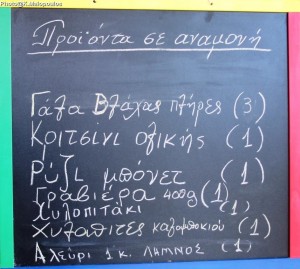 Photo©K.Malopoulos
Προϊόντα σε αναμονή
Γάλα Βλάχας πλήρες (3)
Κριτσινι ολικής (1)
Ρύζι μπόνετ (1)
Γραβιέρα 400g (1)
Χυλοπιτάκι (1)
Χυλοπιτες καλαμποκιού (1)
Αλεύρι 1 κ. ΛΗΜΝΟΣ (1)